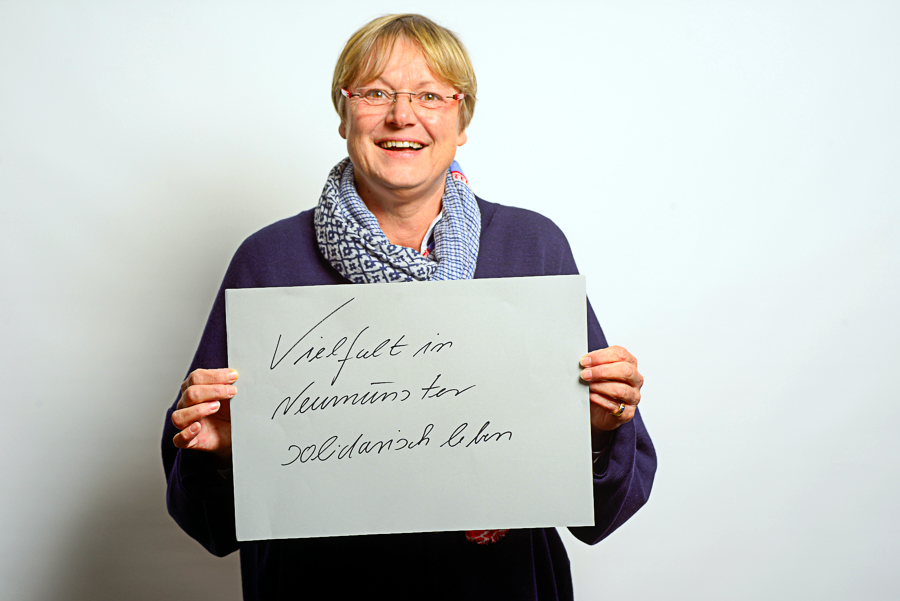 Vielfalt in
Neumünster
solidarisch leben